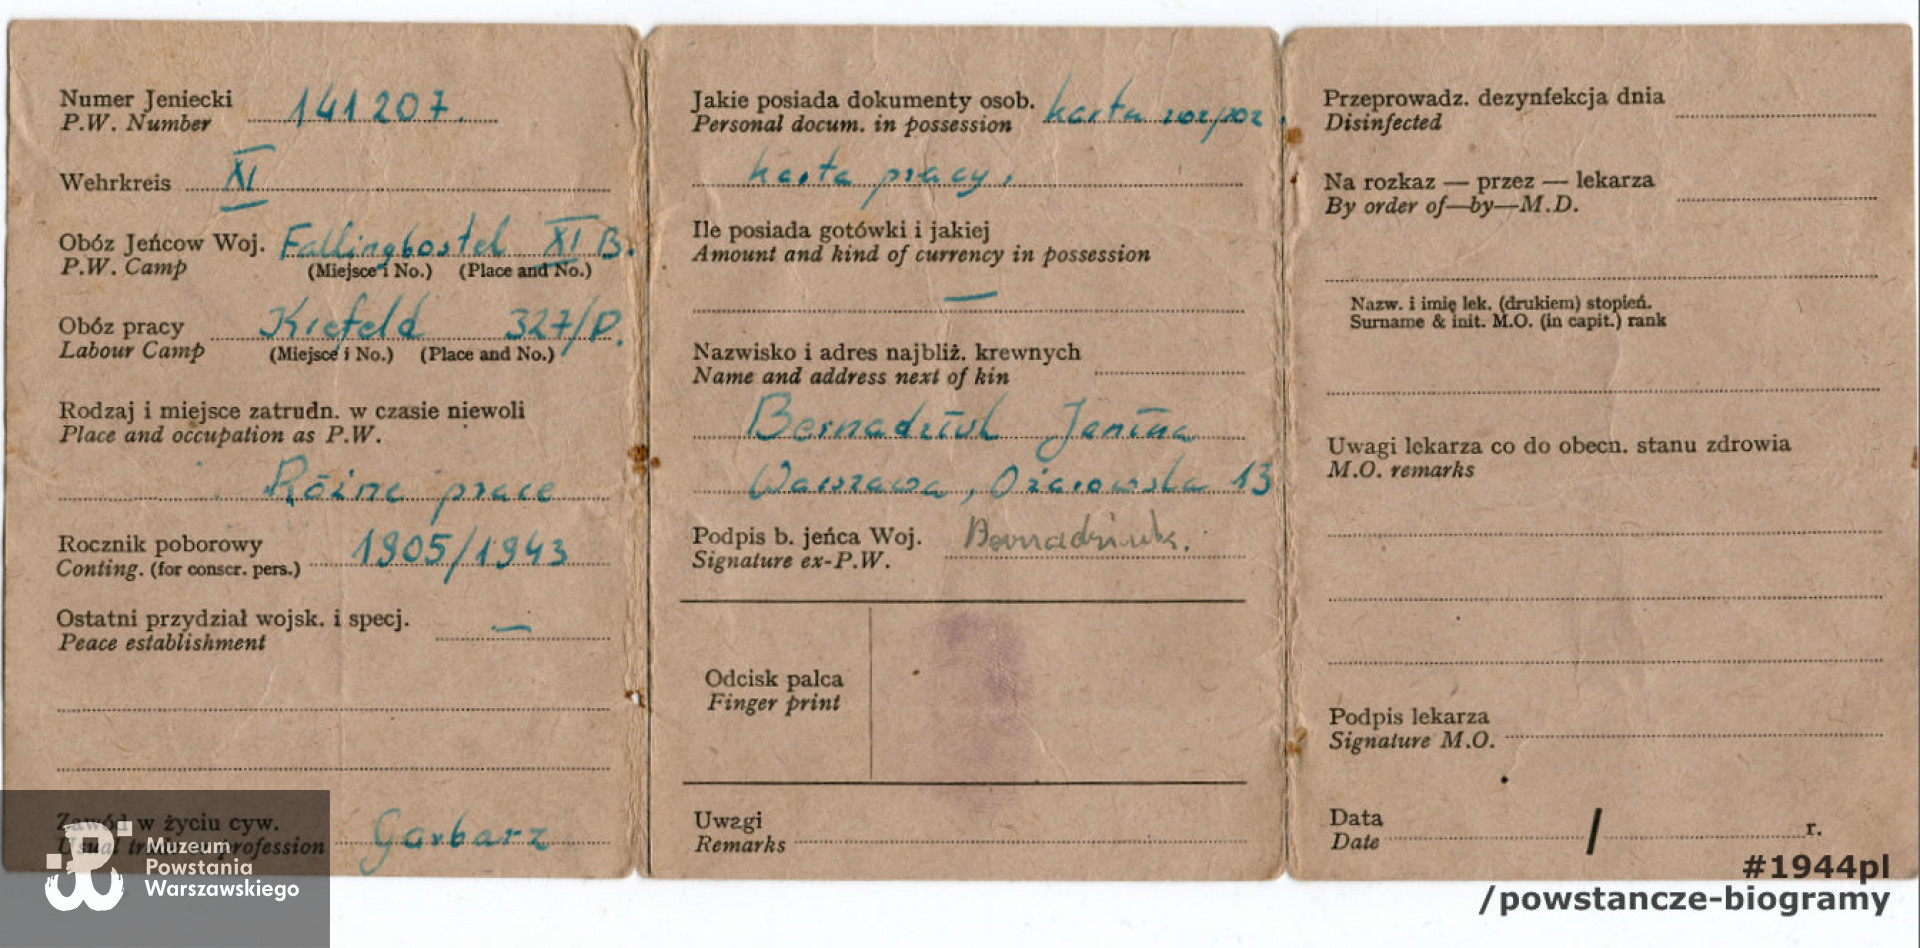 Numer Jeniecki 141207.
P.W. Number
Wehrkreis XI
Obóz Jeńcow Woj. Fallingbostel XI B.
P.W. Camp (Miejsce i No.) (Place and No.)
Obóz pracy Krefeld 327/P.
Labour Camp (Miejsce i No.) (Place and No.)
Rodzaj i miejsce zatrudn. w czasie niewoli
Place and occupation as P.W.
Różne prace
Rocznik poborowy 1905/1943
Conting. (for conscr. pers.)
Ostatni przydział wojsk. i specj. —
Peace establishment
Zawód w życiu cyw. Garbarz
Usual profession
Jakie posiada dokumenty osob. karta
Personal docum. in possession
karta pracy.
Ile posiada gotówki i jakiej
Amount and kind of currency in possession
—
Nazwisko i adres najbliż. krewnych
Name and address next of kin
Bernadziuk Janina
Warszawa, Ożarowska 13
Podpis b. jeńca Woj. Bernadziuk.
Signature ex-P.W.
Odcisk palca
Finger print
Uwagi
Remarks
Przeprowadz. dezynfekcja dnia
Disinfected
Na rozkaz — przez — lekarza
By order of—by—M.D.
Nazw. i imię lek. (drukiem) stopień.
Surname & init. M.O. (in capit.) rank
Uwagi lekarza co do obecn. stanu zdrowia
M.O. remarks
Podpis lekarza
Signature M.O.
Data / r.
Date
Muzeum
Powstania
Warszawskiego
#1944pl
/powstancze-biogramy